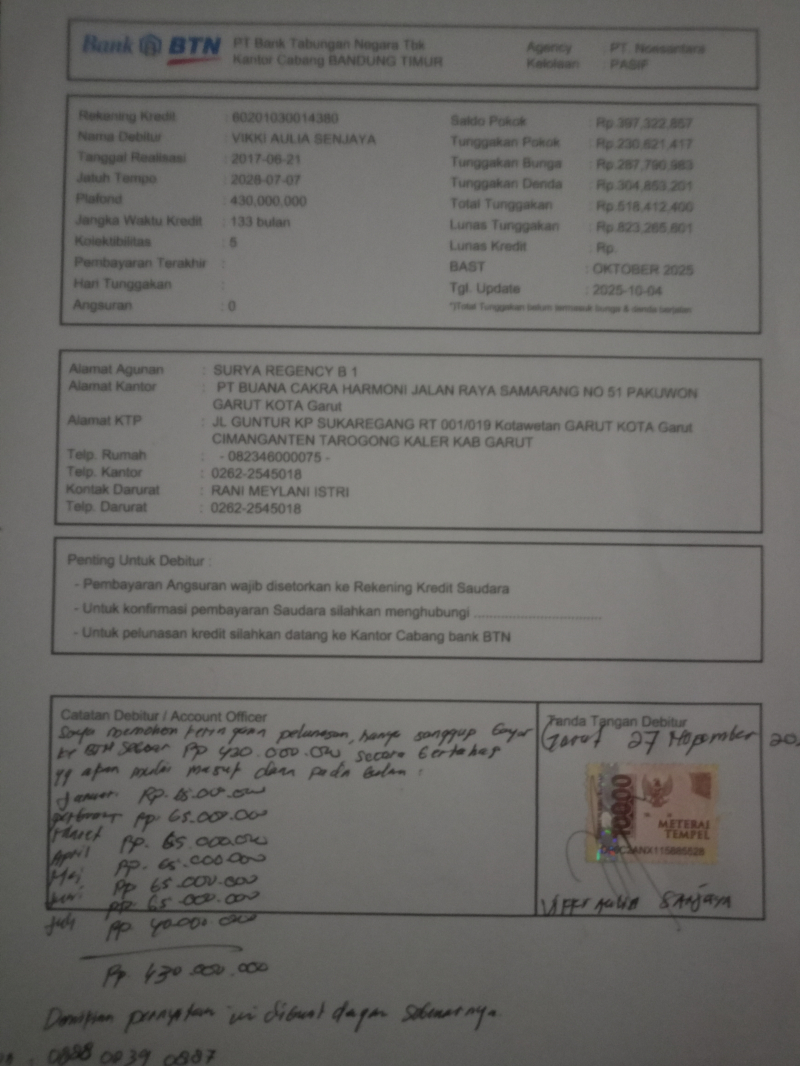 Bank BTN PT Bank Tabungan Negara Tbk
Kantor Cabang BANDUNG TIMUR
Agency : PT. Noesantara
Kelolaan : PASIF
Rekening Kredit : 60201030014380
Nama Debitur : VIKKI AULIA SENJAYA
Tanggal Realisasi : 2017-06-21
Jatuh Tempo : 2028-07-07
Plafond : 430,000,000
Jangka Waktu Kredit : 133 bulan
Kolektibilitas : 5
Pembayaran Terakhir :
Hari Tunggakan :
Angsuran : 0
Saldo Pokok : Rp.397,322,857
Tunggakan Pokok : Rp.230,621,417
Tunggakan Bunga : Rp.287,790,983
Tunggakan Denda : Rp.304,853,201
Total Tunggakan : Rp.518,412,400
Lunas Tunggakan : Rp.823,265,601
Lunas Kredit : Rp.
BAST : OKTOBER 2025
Tgl. Update : 2025-10-04
*)Total Tunggakan belum termasuk bunga & denda berjalan
Alamat Agunan : SURYA REGENCY B 1
Alamat Kantor : PT BUANA CAKRA HARMONI JALAN RAYA SAMARANG NO 51 PAKUWON
GARUT KOTA Garut
Alamat KTP : JL GUNTUR KP SUKAREGANG RT 001/019 Kotawetan GARUT KOTA Garut
CIMANGANTEN TAROGONG KALER KAB GARUT
Telp. Rumah : - 082346000075 -
Telp. Kantor : 0262-2545018
Kontak Darurat : RANI MEYLANI ISTRI
Telp. Darurat : 0262-2545018
Penting Untuk Debitur :
- Pembayaran Angsuran wajib disetorkan ke Rekening Kredit Saudara
- Untuk konfirmasi pembayaran Saudara silahkan menghubungi ................................
- Untuk pelunasan kredit silahkan datang ke Kantor Cabang bank BTN
Catatan Debitur / Account Officer
Saya memohon keringanan pelunasan, hanya sanggup bayar
ke BTN sebesar Rp 430.000.000 secara bertahap
yg akan mulai masuk dana pada bulan :
Januari Rp.
Rp 65.000.000
Maret Rp. 65.000.000
April Rp. 65.000.000
Mei Rp 65.000.000
Juni Rp 65.000.000
Juli Rp 40.000.000
Rp 430.000.000
Demikian pernyataan ini dibuat dengan sebenarnya.
0888 0939 0887
Tanda Tangan Debitur
Garut 27 Nopember
10000
METERAI
TEMPEL
ANX115885528
Vikki Aulia Sanjaya